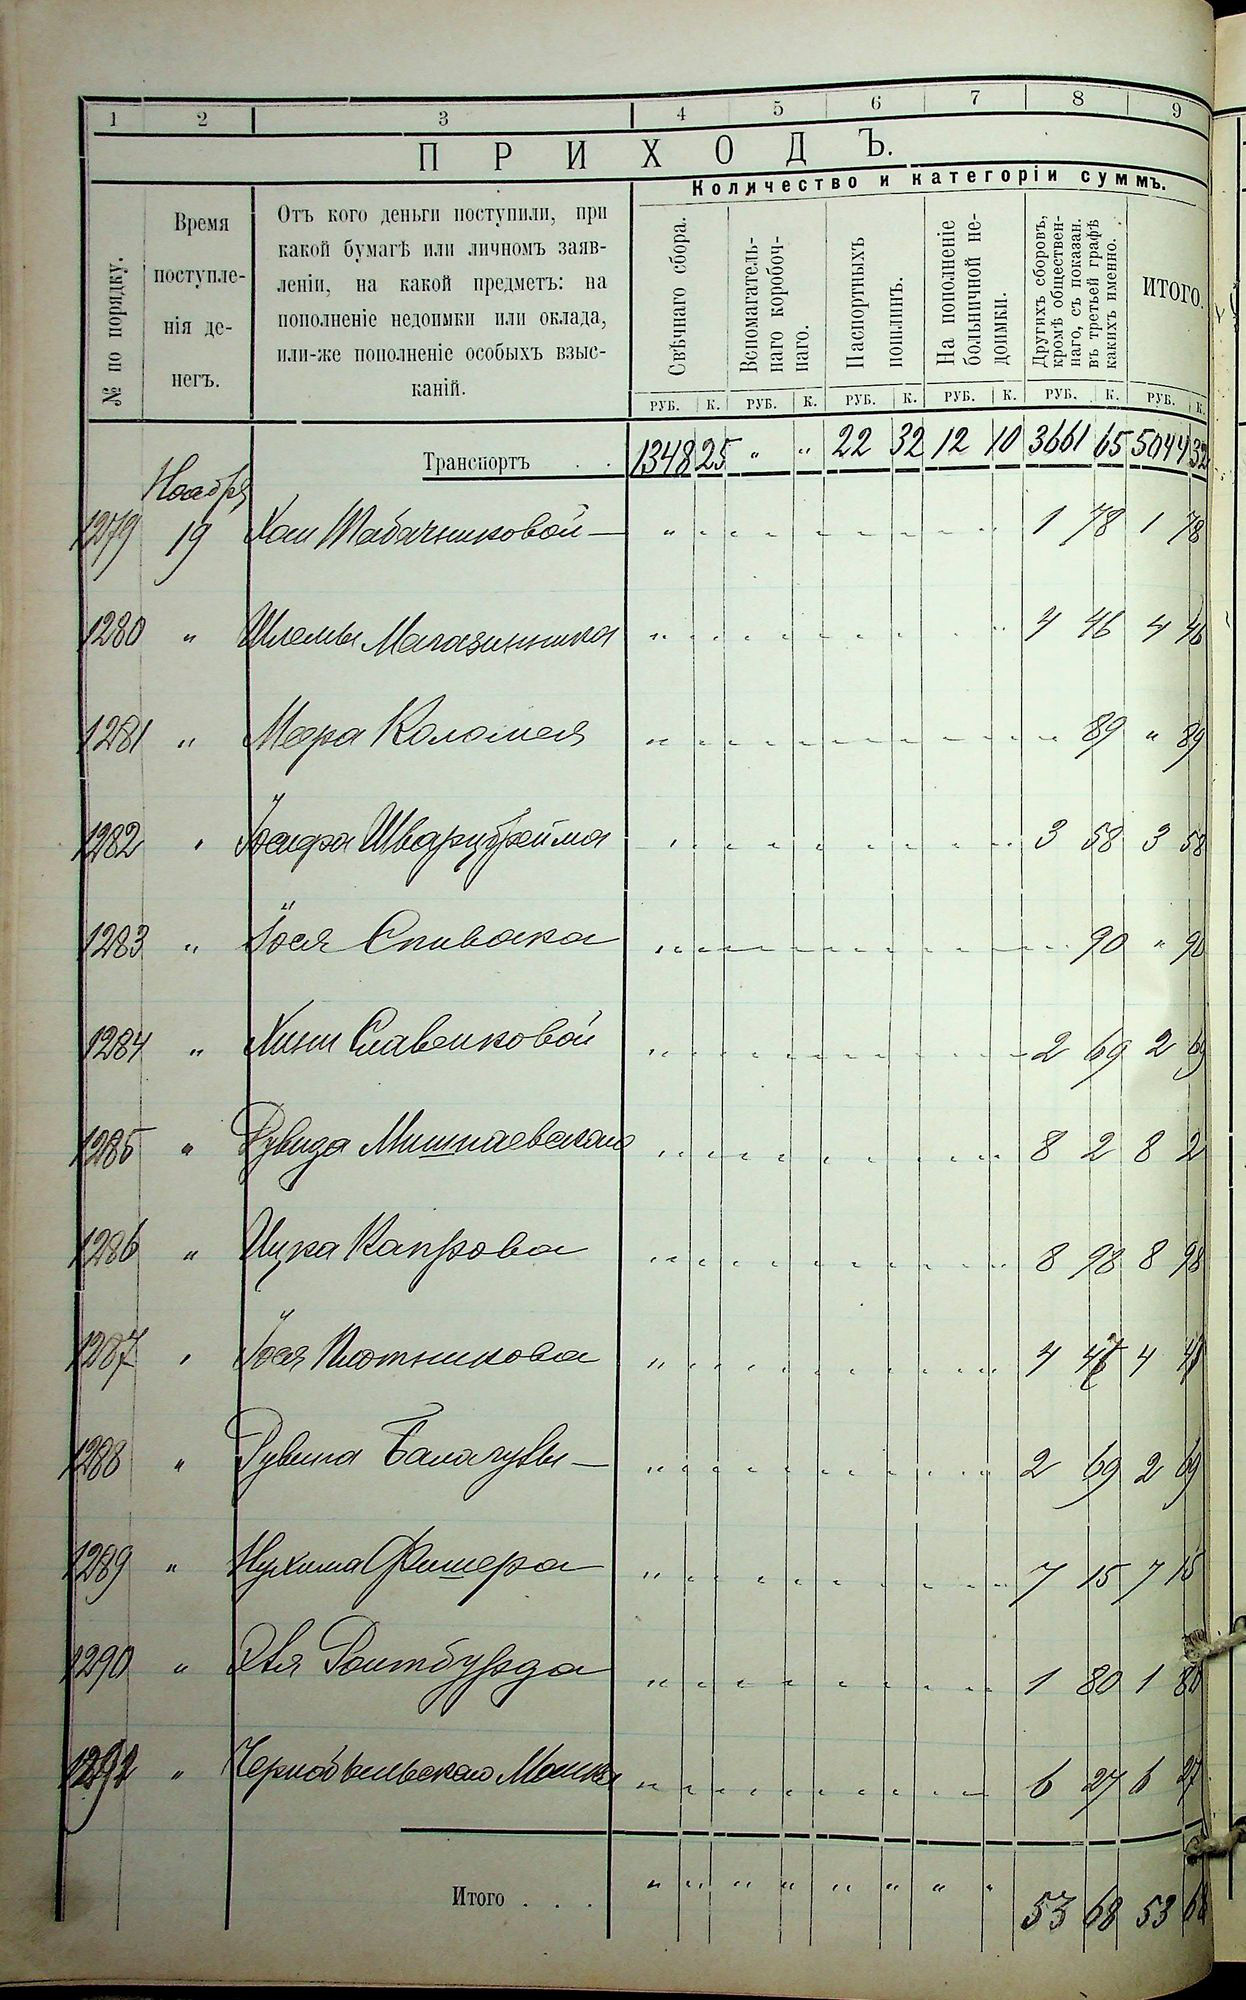 1 2 3 4 5 6 7 8 9
ПРИХОДЪ.
Количество и категоріи суммъ.
№ по порядку.
Время
поступле-
нія де-
негъ.
Отъ кого деньги поступили, при
какой бумагѣ или личномъ заяв-
леніи, на какой предметъ: на
пополненіе недоимки или оклада,
или-же пополненіе особыхъ взыс-
каній.
Свѣчнаго сбора.
Вспомагатель-
наго коробоч-
наго.
Паспортныхъ
пошлинъ.
На пополненіе
больничной не-
доимки.
Другихъ сборовъ,
кромѣ обществен-
наго, съ показан.
въ третьей графѣ
какихъ именно.
ИТОГО.
РУБ. К. РУБ. К. РУБ. К. РУБ. К. РУБ. К. РУБ. К.
Транспортъ . . 1348 25 " " 22 32 12 10 3661 65 5044 32
Ноября
1279 19 Хаи Табачниковой — " " " " " " " " 1 78 1 78
1280 " Шлемы Магазинника " " " " " " " " 4 46 4 46
1281 " Мера Коломея " " " " " " " " " 89 " 89
1282 " Іосифа Шварцбрейма " " " " " " " " 3 58 3 58
1283 " Іося Спивака " " " " " " " " " 90 " 90
1284 " Хини Славенковой " " " " " " " " 2 69 2 69
1285 " " " " " " " " " 8 2 8 2
1286 " Ицка Капрова " " " " " " " " 8 98 8 98
1287 " Іося Плотникова " " " " " " " " 4 47 4 47
1288 " Рувина Балагулы — " " " " " " " " 2 69 2 69
1289 " Нухима Фишера " " " " " " " " 7 15 7 15
1290 " Эля Ройтбурда " " " " " " " " 1 80 1 80
" Чернобыльскаго Мошка " " " " " " " " 6 27 6 27
Итого . . . " " " " " " " " 53 68 53 68